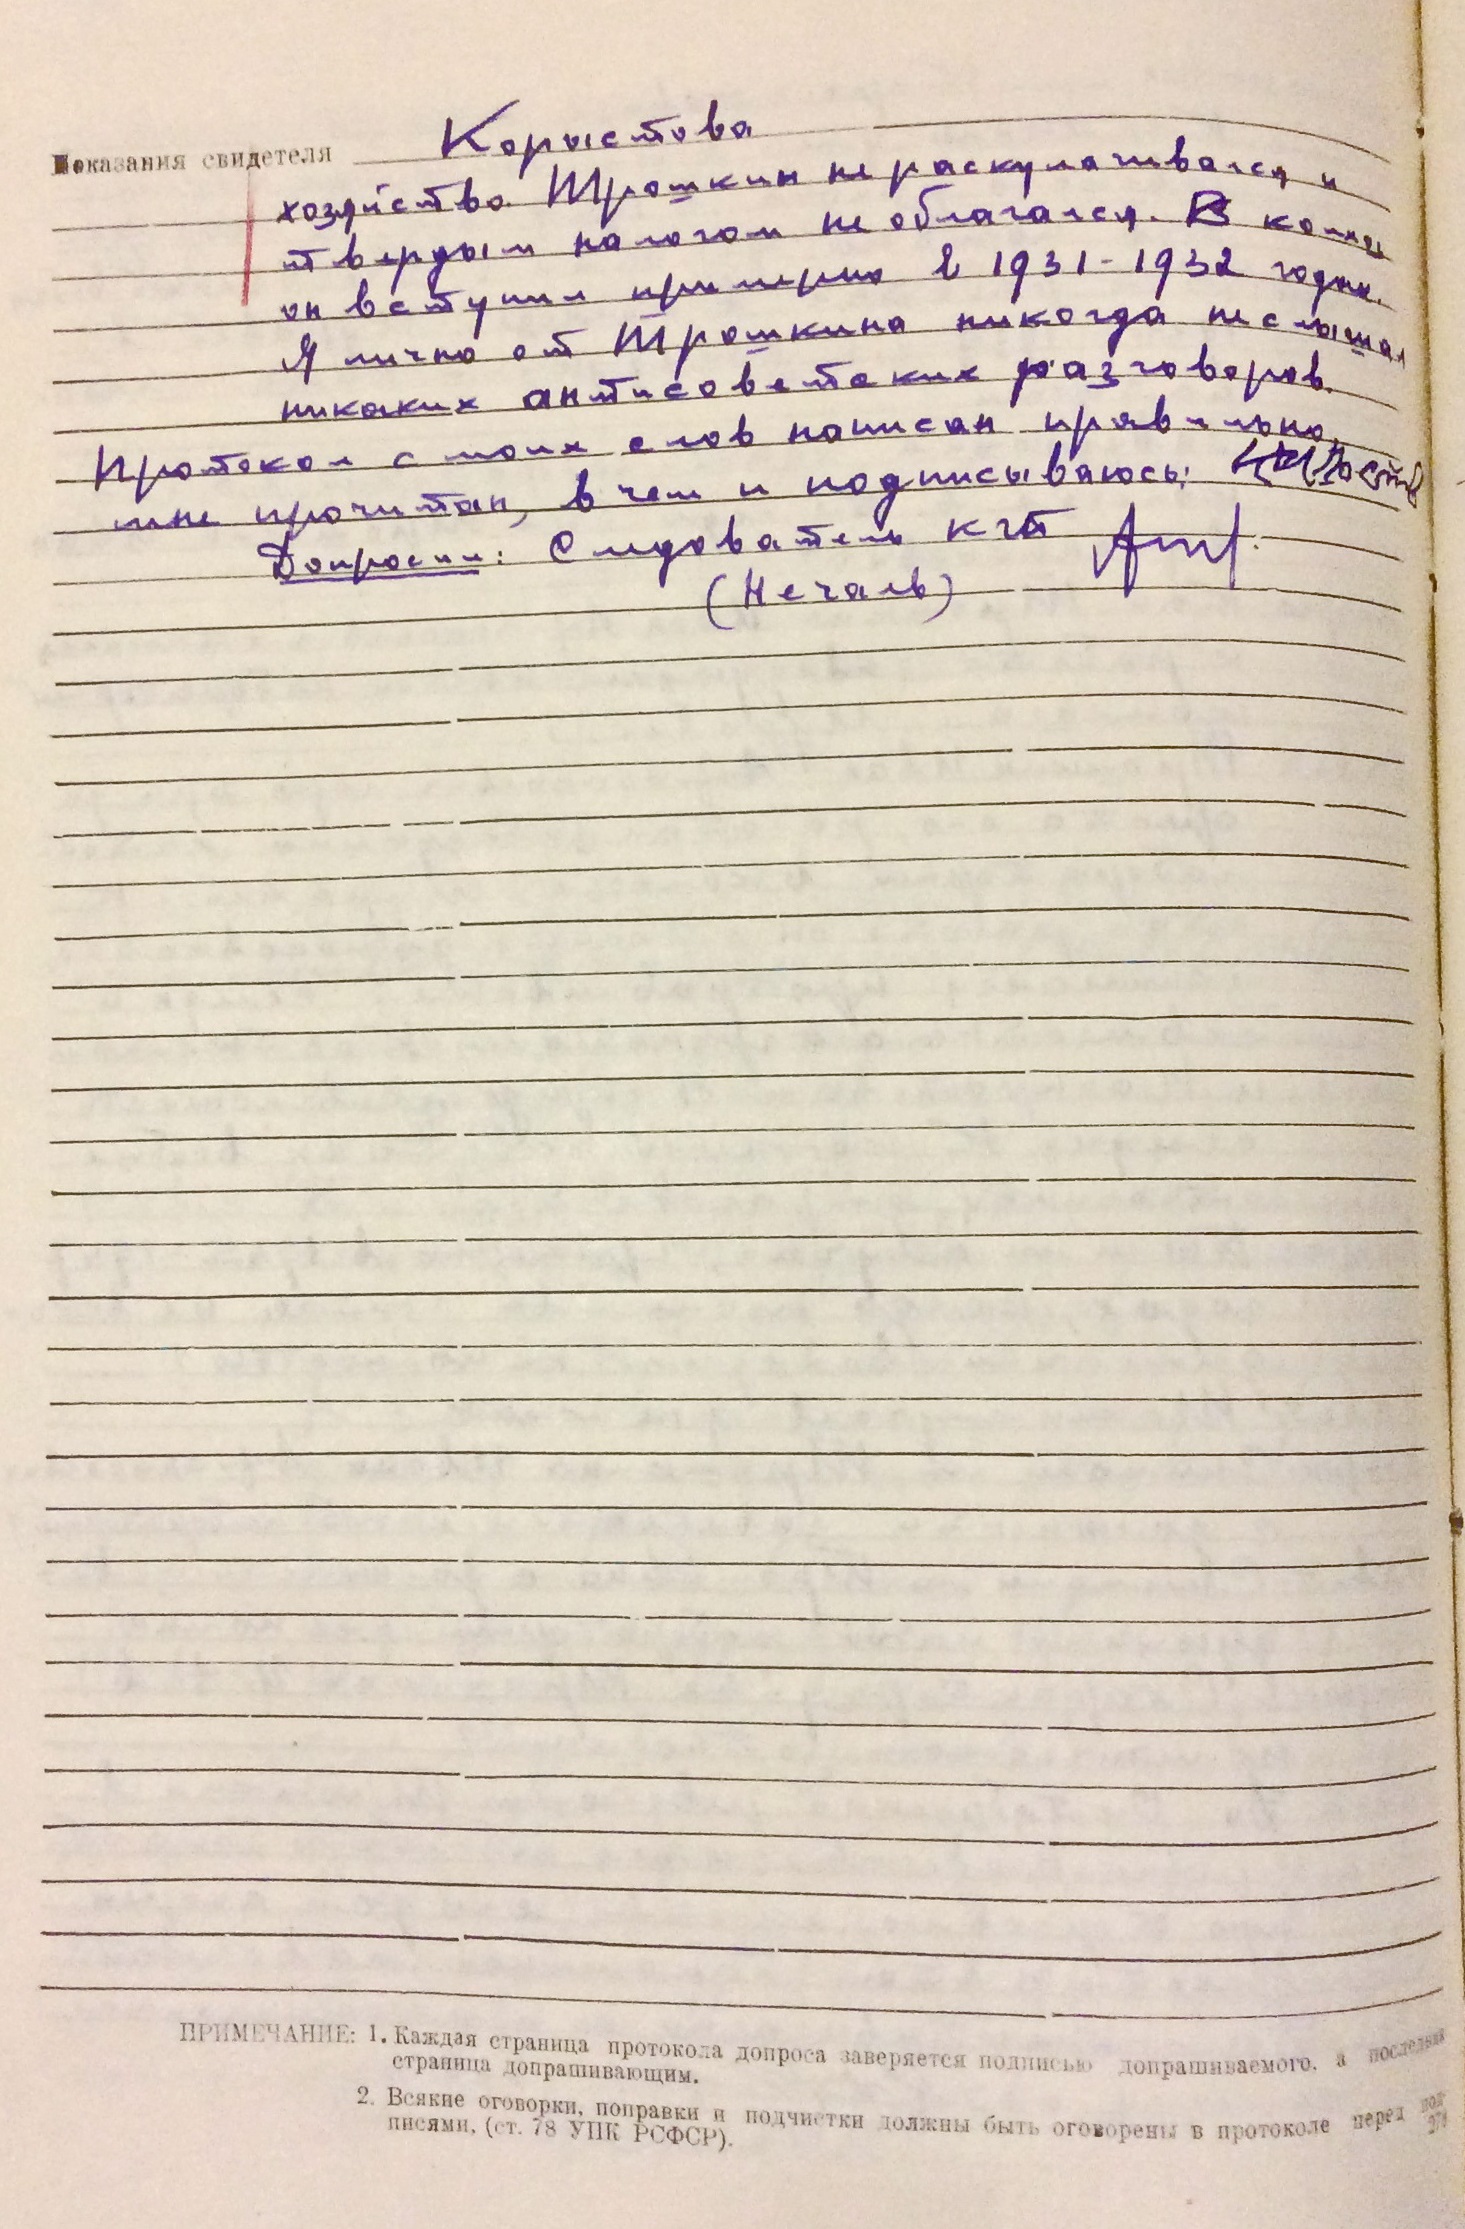 Показания свидетеля Корыстова
хозяйство. Трошкин не раскулачивался и
твердым налогом не облагался. В колхоз
он вступил примерно в 1931-1932 годах.
Я лично от Трошкина никогда не слышал
никаких антисоветских разговоров.
Протокол с моих слов написан правильно,
мне прочитан, в чем и подписываюсь:
Допросил: Следователь КГБ
(Нечаль)
ПРИМЕЧАНИЕ: 1. Каждая страница протокола допроса заверяется подписью допрашиваемого, а последняя
страница допрашивающим.
2. Всякие оговорки, поправки и подчистки должны быть оговорены в протоколе перед под-
писями, (ст. 78 УПК РСФСР).